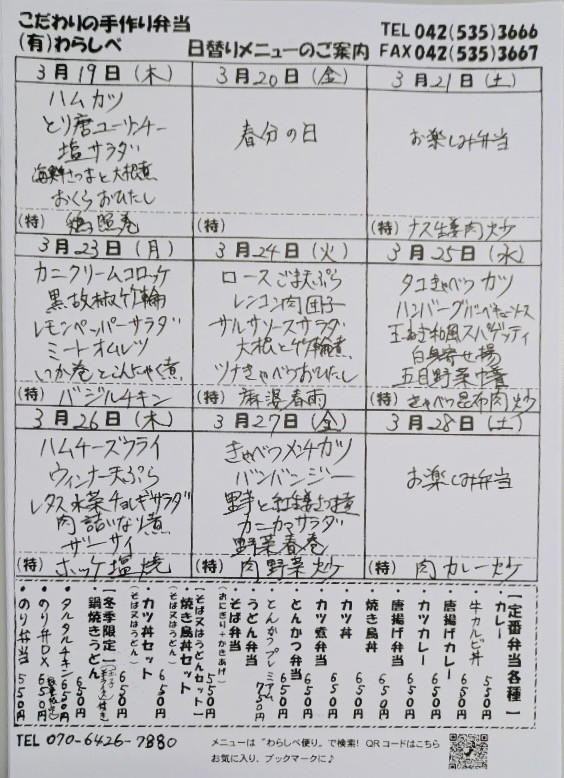 こだわりの手作り弁当
(有)わらしべ
日替りメニューのご案内
TEL 042(535)3666
FAX 042(535)3667
3月19日(木)
ハムカツ
とり唐ユーリンチー
塩サラダ
海鮮さつまと大根煮
おくらおひたし
(特) 鶏照巻
3月20日(金)
春分の日
(特)
3月21日(土)
お楽しみ弁当
(特) ナス生姜肉炒
3月23日(月)
カニクリームコロッケ
黒胡椒竹輪
レモンペッパーサラダ
ミートオムレツ
いか巻とこんにゃく煮
(特) バジルチキン
3月24日(火)
ロースごま天ぷら
レンコン肉団子
サルサソースサラダ
大根と竹輪煮
ツナきゃべつおひたし
(特) 麻婆春雨
3月25日(水)
タコきゃべつカツ
ハンバーグバーベキューソース
玉ねぎ和風スパゲッティ
白身寄せ揚
五目野菜巾着
(特) きゃべつ昆布肉炒
3月26日(木)
ハムチーズフライ
ウィンナー天ぷら
レタス水菜チョレギサラダ
肉詰いなり煮
ザーサイ
(特) ホッケ塩焼
3月27日(金)
きゃべつメンチカツ
バンバンジー
里芋と紅生姜さつま煮
カニカマサラダ
野菜春巻
(特) 肉野菜炒
3月28日(土)
お楽しみ弁当
(特) 肉カレー炒
【定番弁当各種】
カレー 550円
牛カルビ丼 650円
唐揚げカレー 650円
カツカレー 650円
唐揚げ弁当 650円
焼き鳥丼 650円
カツ丼 650円
カツ煮弁当 650円
とんかつ弁当 650円
とんかつプレミアム 750円
うどん弁当
そば弁当 550円
(おにぎり+かきあげ)
【そば又はうどんセット】
焼き鳥丼セット 650円
(そば又はうどん)
カツ丼セット 650円
(そば又はうどん)
【冬季限定】
鍋焼きうどん 650円
タルタルチキン 650円
のり弁DX 650円
のり弁当 550円
TEL 070-6426-7880
メニューは"わらしべ便り"で検索! QRコードはこちら
お気に入り、ブックマークに♪